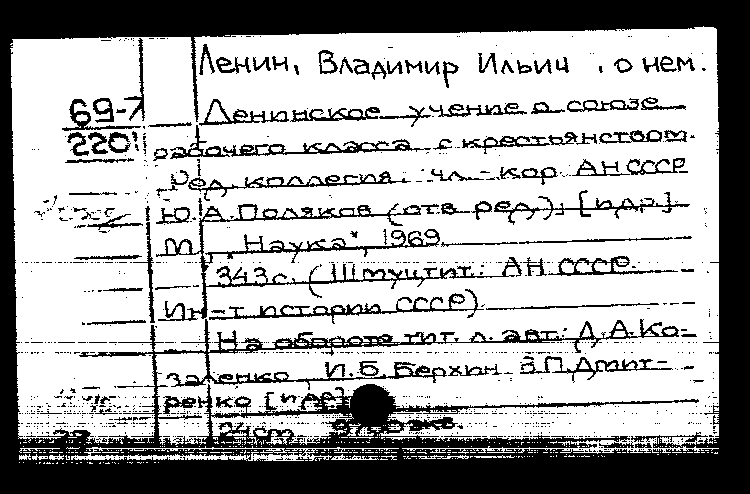 Ленин, Владимир Ильич, о нем.
69-7
Ленинское учение о союзе
2201
рабочего класса с крестьянством.
Ред. коллегия: чл.-кор. АН СССР
Ю.А. Поляков (отв. ред.), [и др.].
М., "Наука", 1969.
343 с. (Шмуцтит.: АН СССР.
Ин-т истории СССР).
На обороте тит. л. авт.: Д.А. Ко-
валенко, И.Б. Берхин, В.П. Дмит-
ренко [и др.]
24 cm. экз.